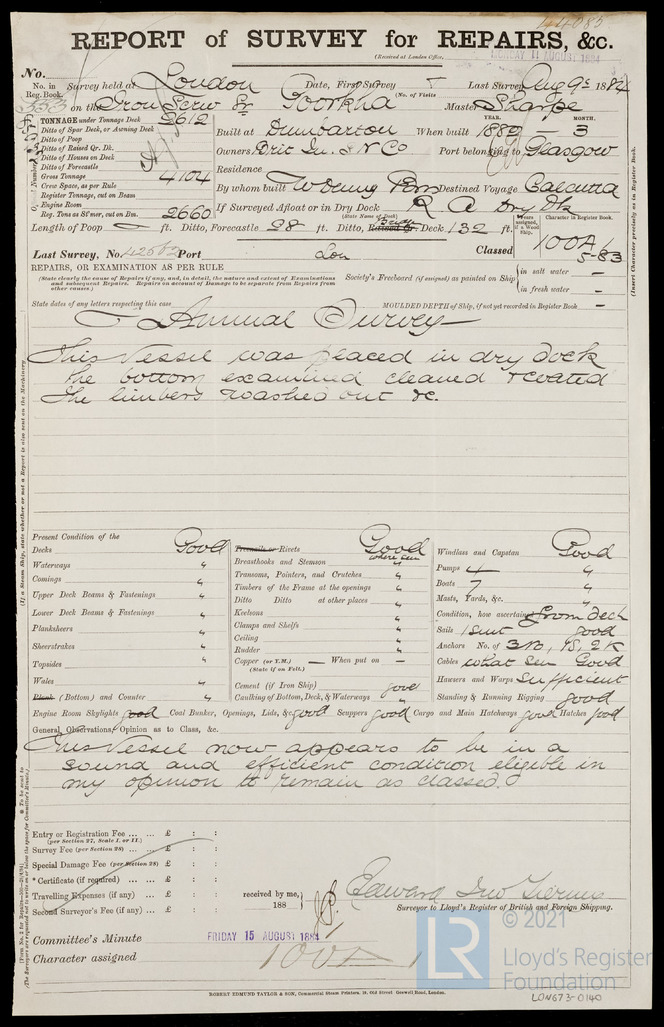 44085
REPORT of SURVEY for REPAIRS, &c.
(Received at London Office, MONDAY 11 AUGUST 1884
No.
No. in Reg. Book. Survey held at London Date, First Survey Last Survey Aug 9th 1884
(No. of Visits
353 on the Iron Screw Sr Goorkha Master Sharpe
TONNAGE under Tonnage Deck 2612
Ditto of Spar Deck, or Awning Deck
Ditto of Poop
Ditto of Raised Qr. Dk.
Ditto of Houses on Deck
Ditto of Forecastle
Gross Tonnage 4104
Crew Space, as per Rule
Register Tonnage, cut on Beam
Engine Room
Reg. Tons as St'mer, cut on Bm. 2660
YEAR. MONTH.
Built at Dumbarton When built 1882 - 3
Owners Brit In. S N Co Port belonging to Glasgow
Residence
By whom built W Denny Bros Destined Voyage Calcutta
If Surveyed Afloat or in Dry Dock R A Dry Dk
(State Name of Dock.)
Length of Poop — ft. Ditto, Forecastle 28 ft. Ditto, Raised Qr. Bridge Deck 132 ft.
Years assigned, if a Wood Ship. Character in Register Book.
Last Survey, No. 42563 Port Lon Classed 100A1
5-83
REPAIRS, OR EXAMINATION AS PER RULE
(State clearly the cause of Repairs if any, and, in detail, the nature and extent of Examinations and subsequent Repairs. Repairs on account of Damage to be separate from Repairs from other causes.)
Society's Freeboard (if assigned) as painted on Ship
in salt water —
in fresh water —
State dates of any letters respecting this case MOULDED DEPTH of Ship, if not yet recorded in Register Book —
Annual Survey
This Vessel was placed in dry dock
the bottom examined cleaned & coated
The limbers washed out &c.
Present Condition of the
Decks Good
Waterways "
Comings "
Upper Deck Beams & Fastenings "
Lower Deck Beams & Fastenings "
Planksheers "
Sheerstrakes "
Topsides "
Wales "
Plank (Bottom) and Counter "
Treenails or Rivets Good where seen
Breasthooks and Stemson "
Transoms, Pointers, and Crutches "
Timbers of the Frame at the openings "
Ditto Ditto at other places "
Keelsons "
Clamps and Shelfs "
Ceiling "
Rudder "
Copper (or Y.M.) — When put on —
(State if on Felt.)
Cement (if Iron Ship) good
Caulking of Bottom, Deck, & Waterways good
Windlass and Capstan Good
Pumps 4 "
Boats 7 "
Masts, Yards, &c. "
Condition, how ascertained from deck
Sails 1 suit good
Anchors No. of 3 B, 1 S, 2 K
Cables what seen Good
Hawsers and Warps Sufficient
Standing & Running Rigging good
Engine Room Skylights good Coal Bunker, Openings, Lids, &c. good Scuppers good Cargo and Main Hatchways good Hatches good
General Observations, Opinion as to Class, &c.
This Vessel now appears to be in a
sound and efficient condition eligible in
my opinion to remain as classed.
Entry or Registration Fee ... ... £ : :
(per Section 27, Scale I. or II.)
Survey Fee (per Section 28) ... £ : :
Special Damage Fee (per Section 28) £ : :
* Certificate (if required) ... £ : :
Travelling Expenses (if any) ... £ : :
Second Surveyor's Fee (if any) ... £ : :
received by me,
188
Surveyor to Lloyd's Register of British and Foreign Shipping.
Committee's Minute FRIDAY 15 AUGUST 1884
Character assigned 100A1
ROBERT EDMUND TAYLOR & SON, Commercial Steam Printers, 19, Old Street, Goswell Road, London.
LR
© 2021
Lloyd's Register
Foundation
LON673-0140